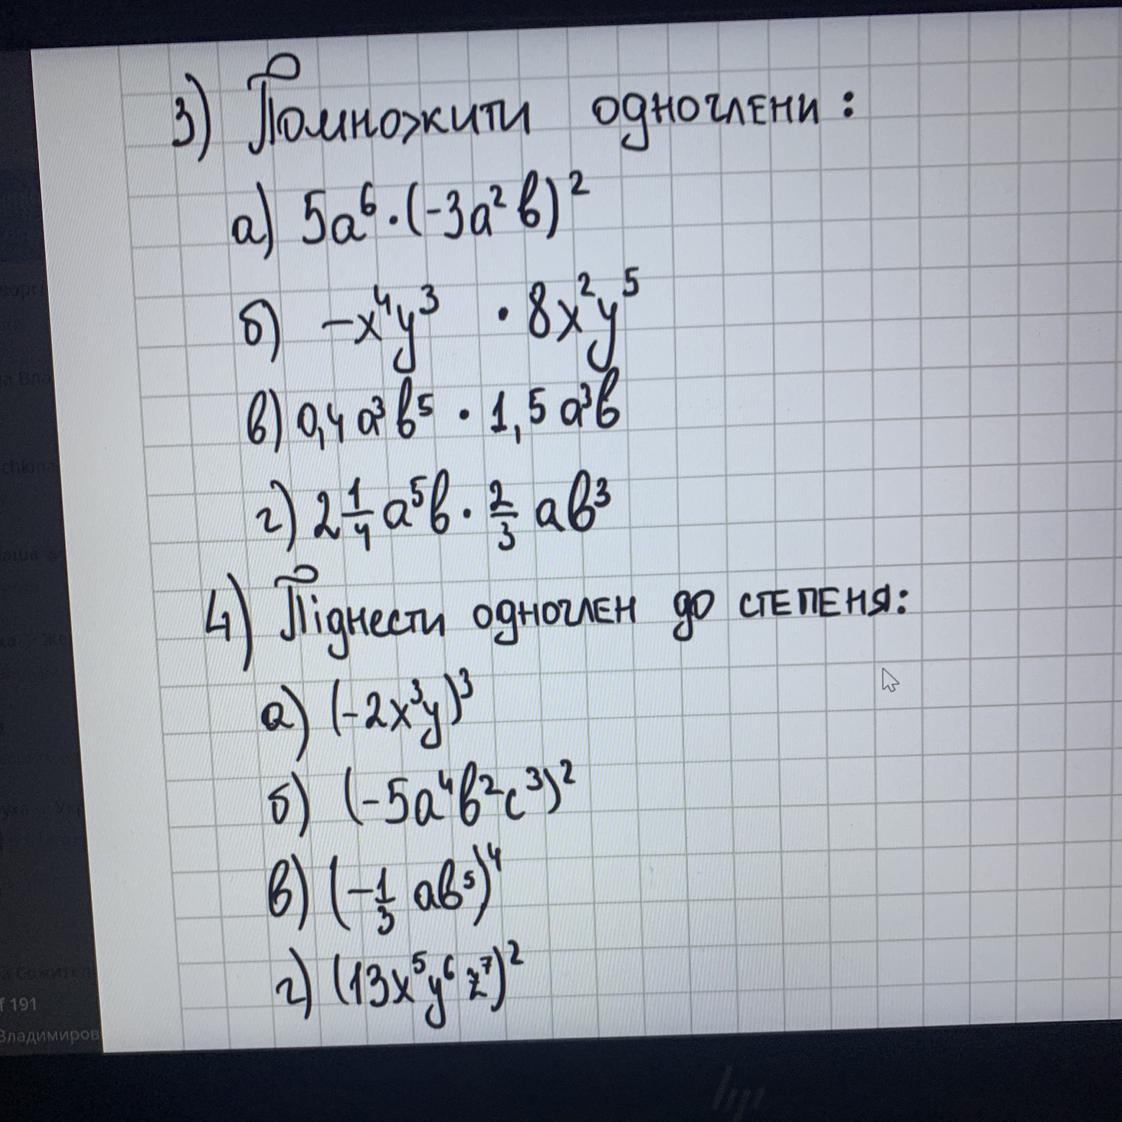 3) Помножити одночлени:
а) 5a⁶·(-3a²b)²
б) -x⁴y³ · 8x²y⁵
в) 0,4a³b⁵ · 1,5a³b
г) 2 1/4 a⁵b · 2/3 ab³
4) Піднести одночлен до степеня:
а) (-2x³y)³
б) (-5a⁴b²c³)²
в) (-1/3 ab⁵)⁴
г) (13x⁵y⁶z⁷)²
f 191
Владимиров
hp